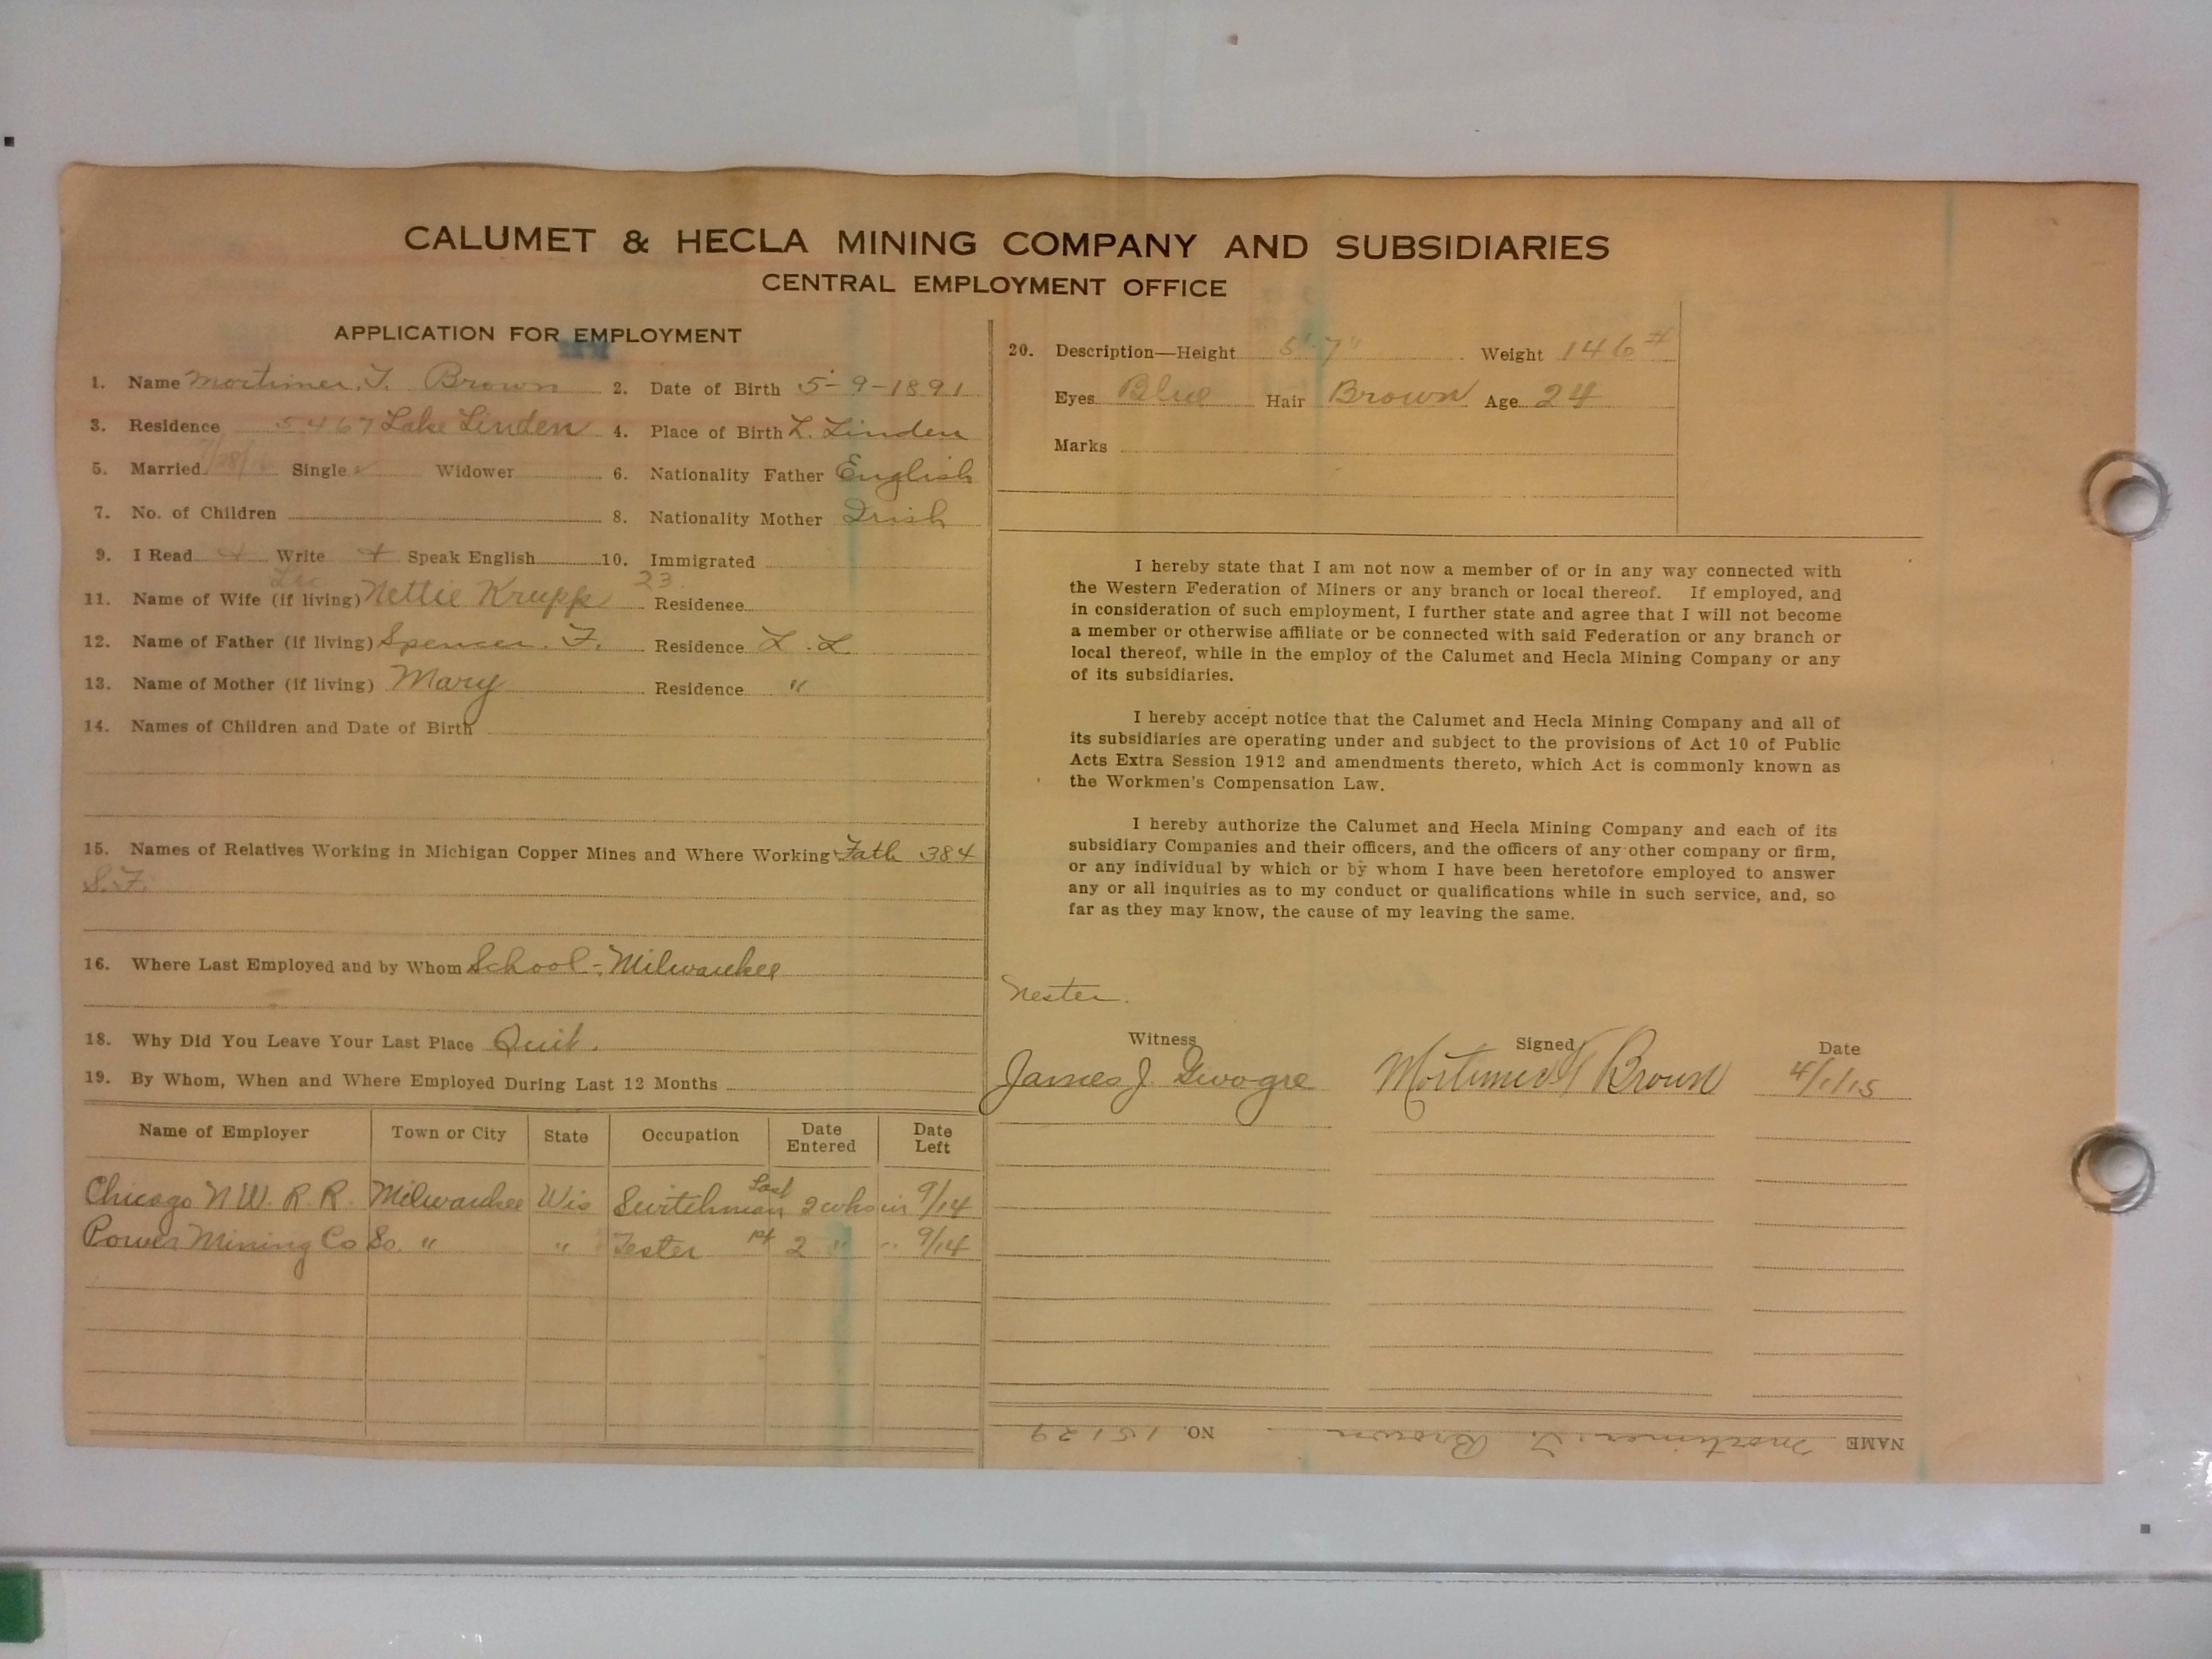 CALUMET & HECLA MINING COMPANY AND SUBSIDIARIES
CENTRAL EMPLOYMENT OFFICE
APPLICATION FOR EMPLOYMENT
1. Name Mortimer. F. Brown 2. Date of Birth 5-9-1891
3. Residence 5467 Lake Linden 4. Place of Birth L. Linden
5. Married Single Widower 6. Nationality Father English
7. No. of Children 8. Nationality Mother Irish
9. I Read Write Speak English 10. Immigrated
23
11. Name of Wife (if living) Nettie Krupp Residence
12. Name of Father (if living) Spencer. F. Residence L. L
13. Name of Mother (if living) Mary Residence "
14. Names of Children and Date of Birth
15. Names of Relatives Working in Michigan Copper Mines and Where Working Fath 384
S.F.
16. Where Last Employed and by Whom School - Milwaukee
18. Why Did You Leave Your Last Place Quit.
19. By Whom, When and Where Employed During Last 12 Months
Name of Employer Town or City State Occupation Date Entered Date Left
Chicago N.W. R. R. Milwaukee Wis Switchman Last 2 wks in 9/14
Power Mining Co So. " " Tester 1st 2 " " 9/14
20. Description—Height 5' 7" Weight 146#
Eyes Blue Hair Brown Age 24
Marks
I hereby state that I am not now a member of or in any way connected with
the Western Federation of Miners or any branch or local thereof. If employed, and
in consideration of such employment, I further state and agree that I will not become
a member or otherwise affiliate or be connected with said Federation or any branch or
local thereof, while in the employ of the Calumet and Hecla Mining Company or any
of its subsidiaries.
I hereby accept notice that the Calumet and Hecla Mining Company and all of
its subsidiaries are operating under and subject to the provisions of Act 10 of Public
Acts Extra Session 1912 and amendments thereto, which Act is commonly known as
the Workmen's Compensation Law.
I hereby authorize the Calumet and Hecla Mining Company and each of its
subsidiary Companies and their officers, and the officers of any other company or firm,
or any individual by which or by whom I have been heretofore employed to answer
any or all inquiries as to my conduct or qualifications while in such service, and, so
far as they may know, the cause of my leaving the same.
Nester.
Witness Signed Date
James J. Mortimer F Brown 4/1/15
NAME Mortimer. F. Brown NO. 15129